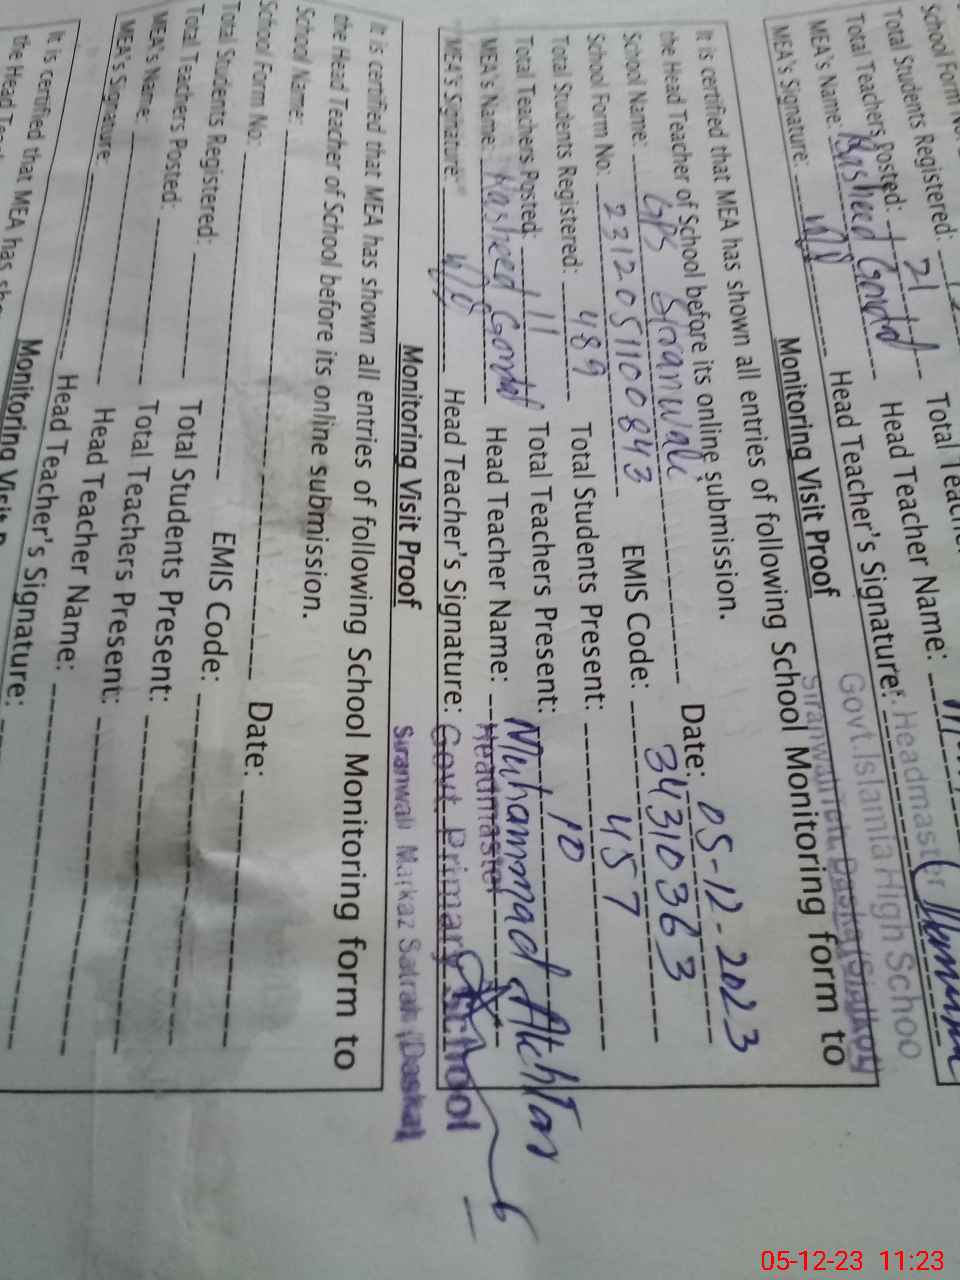 School Form No
Total Students Registered:
Total Teachers Posted: 21 Head Teacher Name:
MEA's Name: Rasheed Gondal Head Teacher's Signature: Headmaster
MEA's Signature: Govt. Islamia High Schoo
Monitoring Visit Proof
It is certified that MEA has shown all entries of following School Monitoring form to
the Head Teacher of School before its online submission.
School Name: GPS Siranwali Date: 05-12-2023
School Form No: 2312051100843 EMIS Code: 34310363
Total Students Registered: 489 Total Students Present: 457
Total Teachers Posted: 11 Total Teachers Present: 10
MEA's Name: Rasheed Gondal Head Teacher Name: Muhammad Akhtar
MEA's Signature: Head Teacher's Signature:
Headmaster
Govt. Primary School
Siranwali Markaz Satrah (Daska)
Monitoring Visit Proof
It is certified that MEA has shown all entries of following School Monitoring form to
the Head Teacher of School before its online submission.
School Name: Date:
School Form No: EMIS Code:
Total Students Registered: Total Students Present:
Total Teachers Posted: Total Teachers Present:
MEA's Name: Head Teacher Name:
MEA's Signature: Head Teacher's Signature:
Monitoring Visit
It is certified that MEA has
the Head
05-12-23 11:23